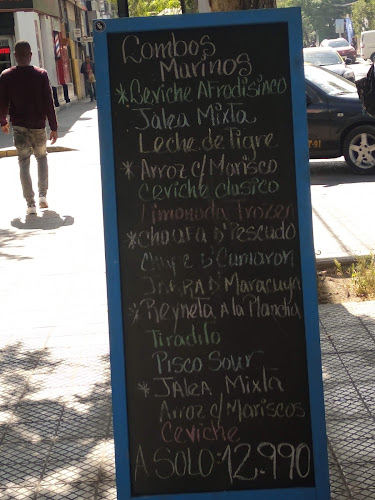 Combos
Marinos
*Ceviche Afrodisinco
Jalea Mixta
Leche de Tigre
*Arroz c/Marisco
Ceviche clasico
Limonada Frozen
*Chaufa D'Pescado
Chupe D'Camaron
Jarra D'Maracuya
*Reyneta A la Plancha
Tiradito
Pisco Sour
*Jalea Mixta
Arroz c/Mariscos
Ceviche
A SOLO: 12.990